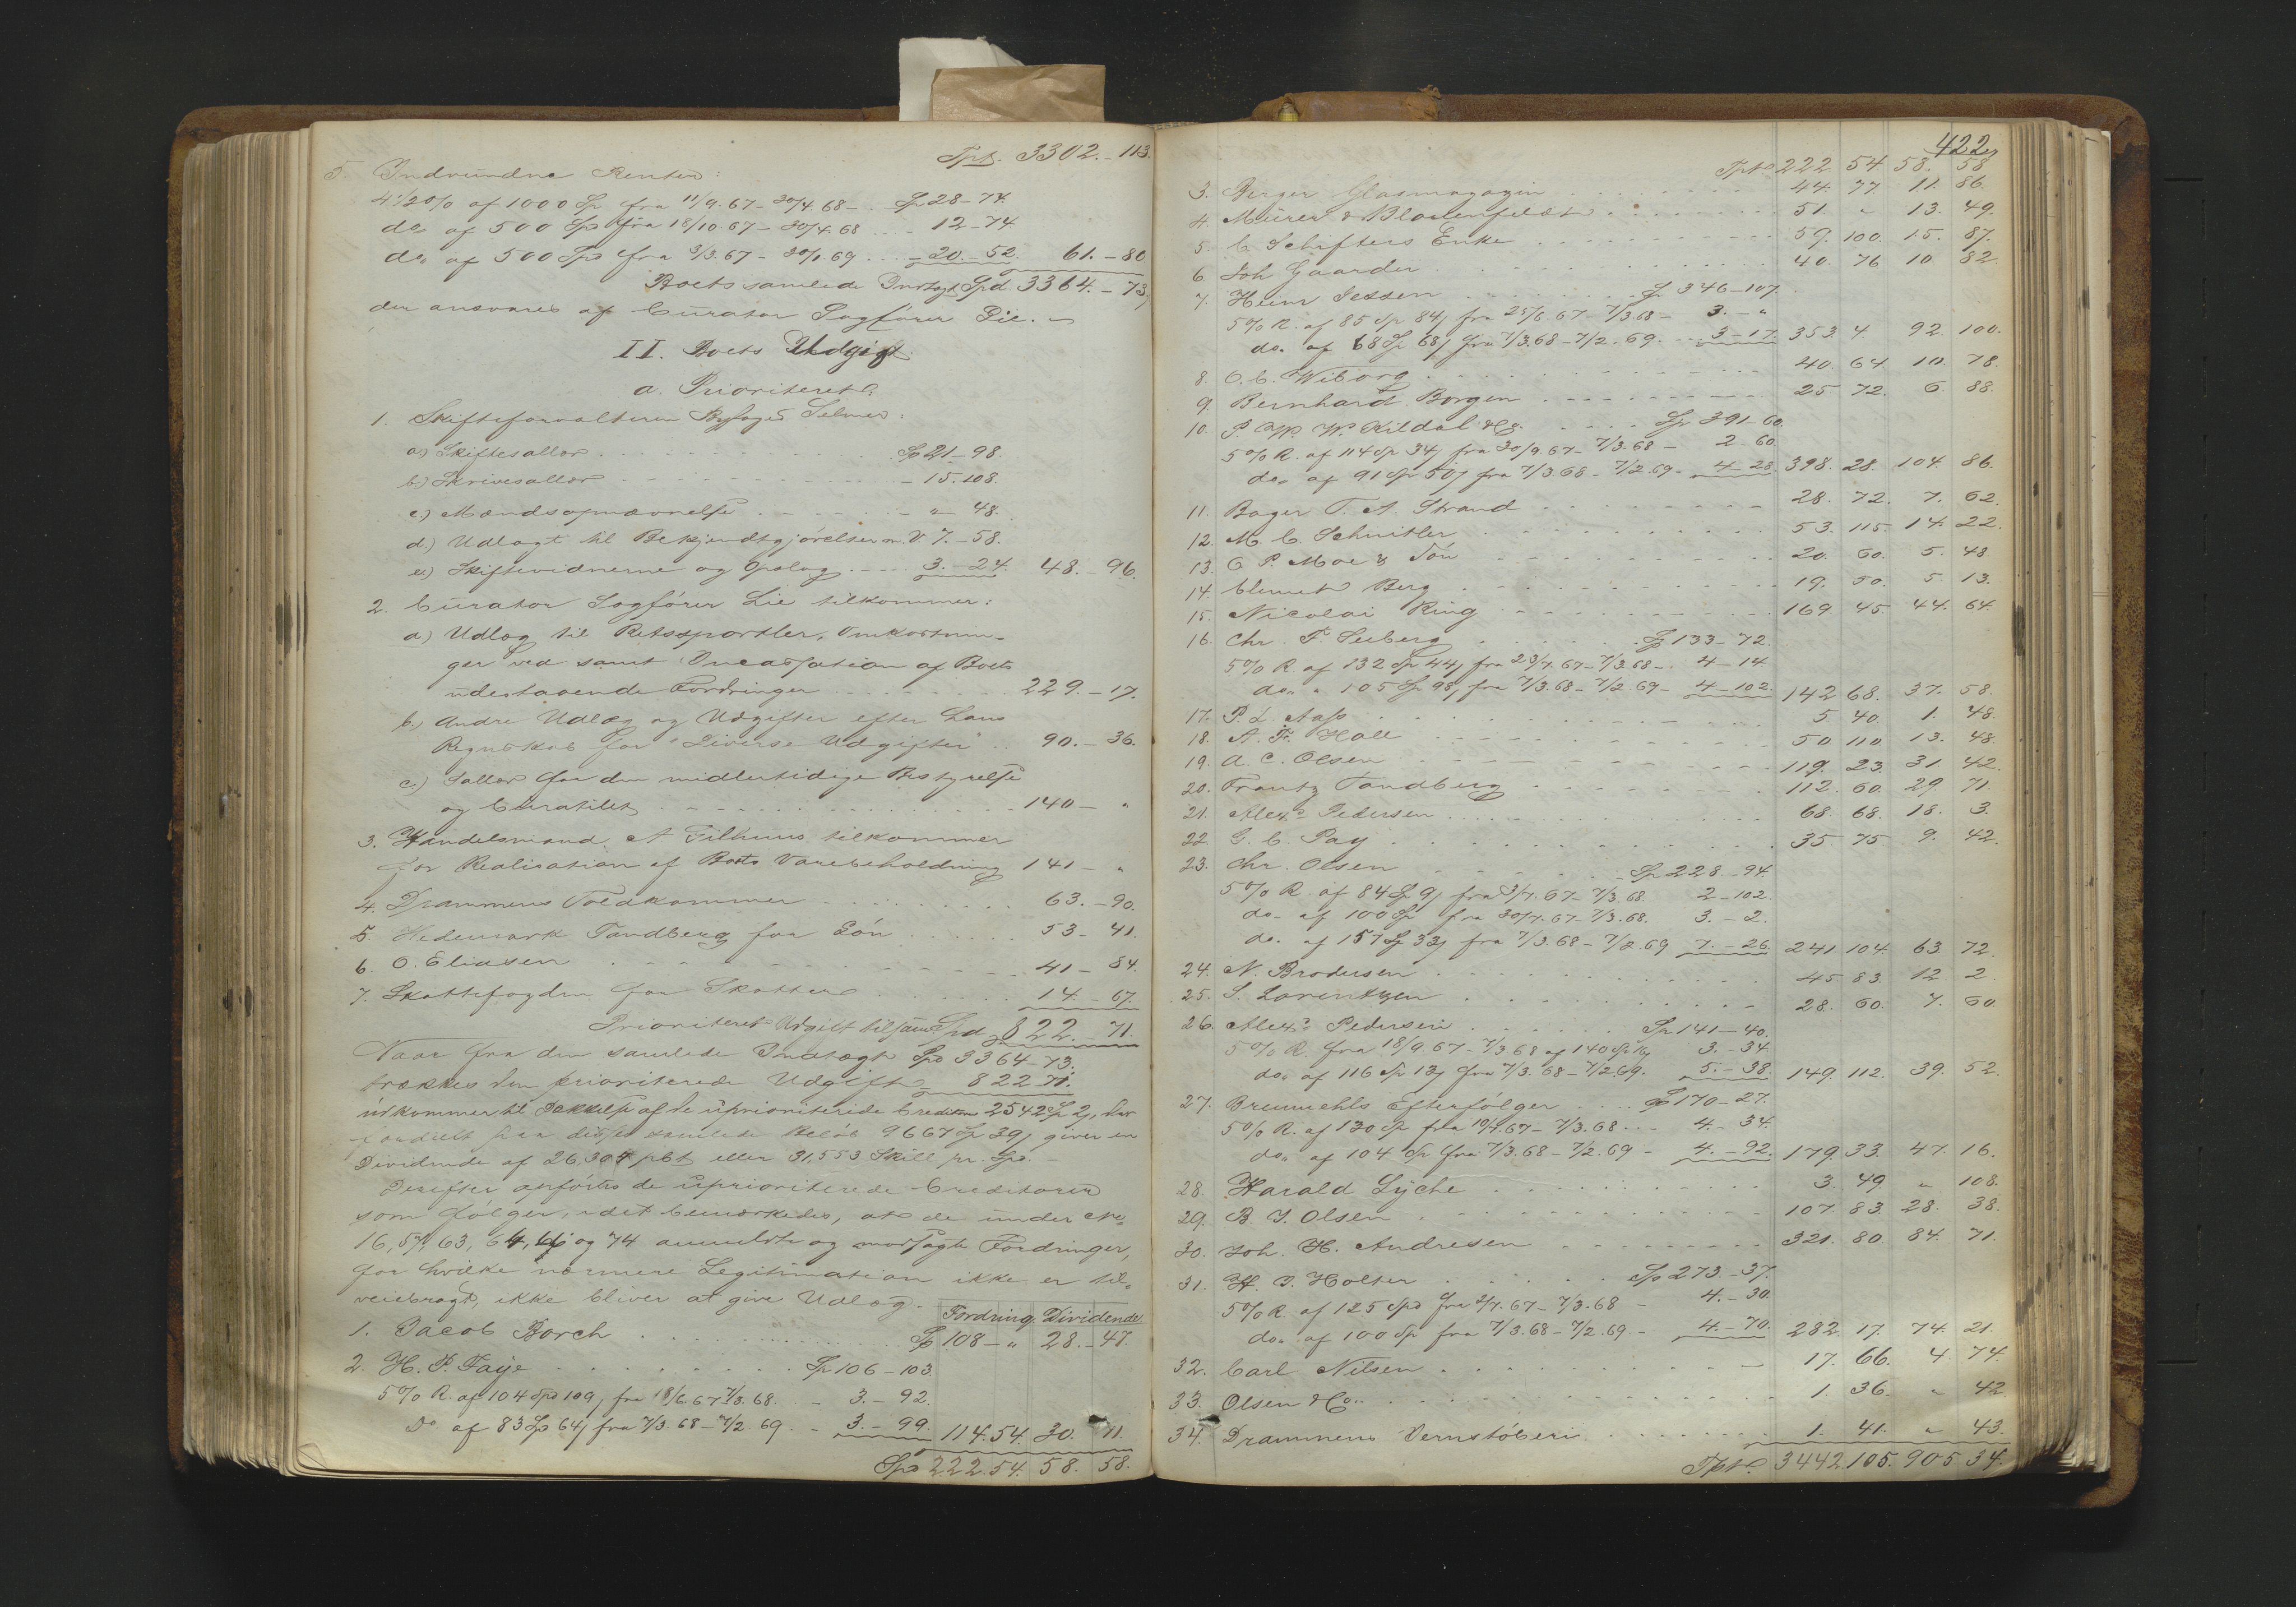 Tpt. 3302.-113.
5. Indvundne Renter:
4 1/2 % af 1000 Sp fra 11/9.67 - 30/4.68 - . Sp 28-74.
do af 500 Sp fra 18/10.67 - 30/4.68 . . - 12-74
do. af 500 Spd fra 3/3.67 - 30/1.69 . . . - 20.-52. 61.-80
Boets samlede Indtægt Spd 3364.-73,
der ansvares af Curator Sagfører Lie. -
II. Boets Udgift.
a. Prioriteret:
1. Skifteforvalteren Byfoged Selmer:
a) Skiftesallær . . . . Sp 21-98.
b.) Skriversallær - - - - - 15.108.
c.) Mændsopnævnelse - - - - „ 48.
d.) Udlagt til Bekjendtgjørelser m.V. 7.-58.
e.) Skiftevidnerne og Oplag . - - - 3.-24. 48.-96.
2. Curator Sagfører Lie tilkommer:
a) Udlæg til Retssportler, Omkostnin-
ger ved samt Incassation af Boets
udestaaende Fordringer . . . . . 229.-17.
b.) Andre Udlæg og Udgifter efter hans
Regnskab for "Diverse Udgifter" . . 90.-36.
c.) Sallær for den midlertidige Bestyrelse
og Curatilet - - - - - 140- „
3. Handelsmand A Filhuus tilkommer
for Realisation af Boets Varebeholdning 141- „
4. Drammens Toldkammer . . . . . 63.-90.
5. Hedemark Tandberg for Løn . . . . 53-41.
6. O. Eliasen - - - - - 41-84.
7. Skattefogden for Skatter . . . . . 14.-67.
Prioriteret Udgift tilsam. Spd 822.-71.
Naar fra den samlede Indtægt Spd 3364-73.
trækkes den prioriterede Udgift - 822-71.
udkommer til Dækkelse af de uprioriterede Creditorer 2542 Sp 2 s, der
fordelt paa disses samlede Beløb 9667 Sp 39 s giver en
Dividende af 26,304 pCt eller 31,553 Skill pr. Spd. -
Derefter opføres de uprioriterede Creditorer
som følger, idet bemærkedes, at de under No.
16, 57, 63, 64, og 74 anmeldte og modsagte Fordringer,
for hvilke nærmere Legitimation ikke er til-
veiebragt, ikke bliver at give Udlæg.
Fordring Dividende.
1. Jacob Borch . . . . . Sp 108- „ 28.-47.
2. H. P. Faye - - - - Sp 106-103.
5% R. af 104 Spd 109 s fra 18/6.67 7/3.68. - 3.-92.
Do af 83 Sp 64 s fra 7/3.68 - 7/2.69 . - 3.-99. 114.54. 30. 11.
Spd 222.54. 58. 58.
422
Tpt 222 54 58. 58
3. Berger Glasmagazin . . . . . 44. 77. 11. 86.
4. Mürer & Blomenfeldt . . . . . 51. „ 13. 49.
5. C. Schifters Enke . . . . . 59. 100. 15. 87.
6 Joh Gaarder . . . . . 40. 76 10. 82.
7. Heinr Jessen . . . . . Sp 346-107.
5% R. af 85 Sp 84 s fra 25/6.67 - 7/3.68 - 3.- „
do. af 68 Sp 68 s fra 7/3.68 - 7/2.69. - 3-17. 353 4. 92. 100.
8. O. C. Wiborg . . . . . 40. 64 10. 78.
9. Bernhard Borgen . . . . . 25 72. 6. 88.
10. P. W. W. Kildal & Cg. . . . . Sp 391-60.
5% R. af 114 Sp 34 s fra 30/9.67 - 7/3.68 - 2-60.
do. af 91 Sp 50 s fra 7/3.68 - 7/2.69 - 4-28. 398. 28. 104. 86.
11. Bager T. A. Strand . . . . . 28. 72. 7. 62.
12. M. C. Schnitler . . . . . 53. 115. 14. 22.
13. O P. Moe & Søn . . . . . 20. 60. 5. 48.
14. Clemet Berg . . . . . 19. 50. 5. 13.
15. Nicolai Ring . . . . . 169. 45. 44. 64.
16. Chr. F. Seeberg . . . . . Sp 133-72.
5% R. af 132 Sp 44 s fra 23/7.67 - 7/3.68 - . 4-14.
do. „ 105 Sp 98 s fra 7/3.68 - 7/2.69 - 4-102. 142 68. 37. 58.
17. P. L. Aass . . . . . 5 40. 1. 48.
18. A. Fr. Hall . . . . . 50 110 13. 48.
19. A. C. Olsen . . . . . 119. 23. 31. 42.
20. Frantz Tandberg . . . . . 112. 60. 29. 71.
21. Alexr Pedersen . . . . . 68 68. 18. 3.
22. G. C. Pay . . . . . 35 75 9. 42.
23. Chr. Olsen . . . . . Sp 228.-94.
5% R. af 84 Sp 9 s fra 3/7.67 - 7/3.68. 2-102.
do. af 100 Sp fra 30/7.67 - 7/3.68. 3.-2.
do. af 157 Sp 33 s fra 7/3.68 - 7/2.69 7.-26. 241. 104. 63. 72.
24. N. Brodersen . . . . . 45 83. 12. 2.
25. S. Lorentzen . . . . . 28. 60. 7. 60
26. Alexr Pedersen . . . . . Sp 141-40.
5% R. fra 18/9.67 - 7/3.68 af 140 Sp 16 s 3.-34.
do. af 116 Sp 13 s fra 7/3.68 - 7/2.69. 5.-38. 149. 112. 39. 52.
27. Bremmehls Efterfølger . . . . Sp 170-27.
5% R. af 130 Sp fra 10/7.67 - 7/3.68 . . - 4.-34.
do. af 104 Sp fra 7/3.68 - 7/2.69 - 4.-92. 179. 33. 47. 16.
28. Harald Lyche . . . . . 3. 49. „ 108.
29. B. J. Olsen . . . . . 107. 83. 28. 38.
30. Joh. H. Andresen . . . . . 321. 80. 84. 71.
31. H. J. Holter . . . . . Sp 273-37.
5% R. af 125 Spd fra 2/7.67 - 7/3.68 - 4.-30.
do. af 100 Sp fra 7/3.68 - 7/2.69 - 4.-70. 282. 17. 74. 21.
32. Carl Nilsen . . . . . 17. 66. 4. 74.
33. Olsen & Co. . . . . . 1. 36. „ 42
34. Drammens Jernstøberi . . . . . 1. 41. „ 43.
Tpt. 3442.105. 905 34.